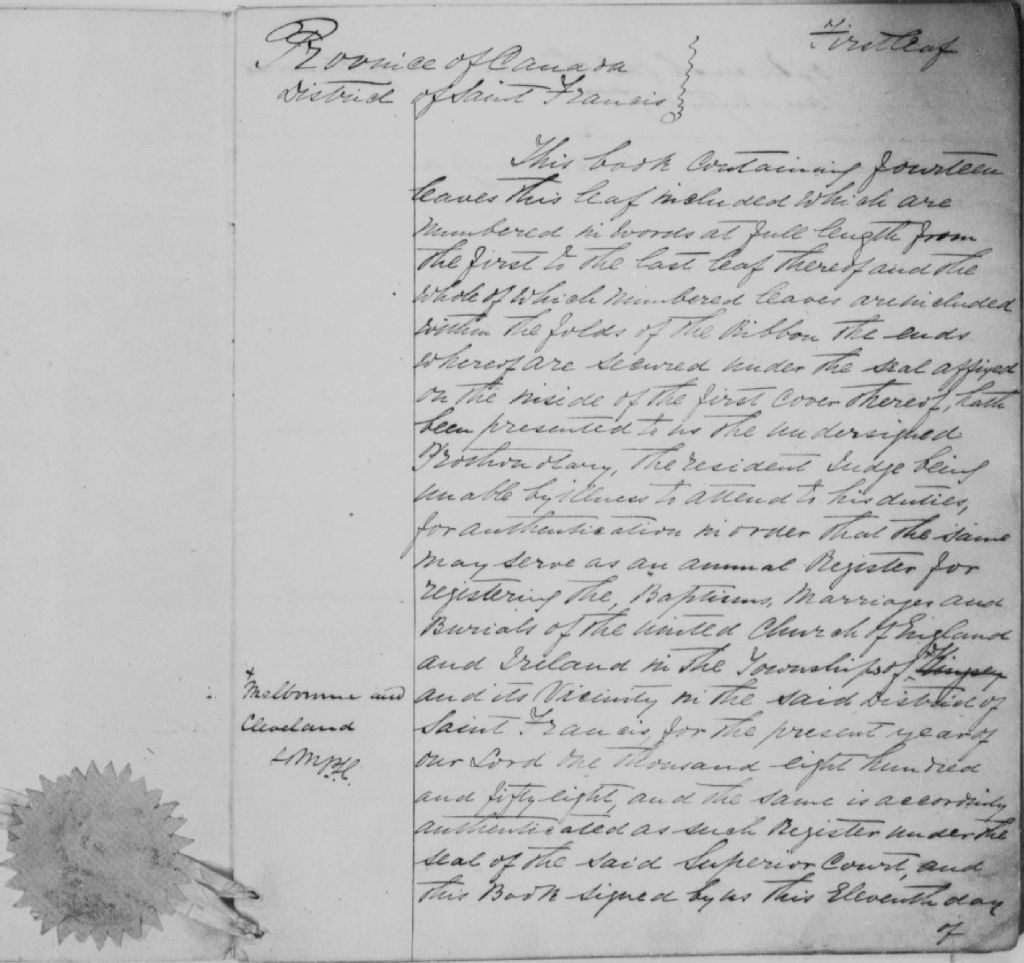 First leaf
Province of Canada
District of Saint Francis
This book containing fourteen
leaves this leaf included which are
numbered in words at full length from
the first to the last leaf thereof and the
whole of which numbered leaves are included
within the folds of the Ribbon the ends
whereof are secured under the seal affixed
on the inside of the first cover thereof, hath
been presented to us the undersigned
Prothonotary, the resident Judge being
unable by illness to attend to his duties,
for authentication in order that the same
may serve as an annual Register for
registering the Baptisms, Marriages and
Burials of the United Church of England
and Ireland in the Townships of Kingsey
and its Vicinity in the said District of
Saint Francis, for the present year of
our Lord one thousand eight hundred
and fifty eight, and the same is accordingly
authenticated as such Register under the
seal of the said Superior Court, and
this Book signed by us this Eleventh day
of
Melbourne and
Cleveland